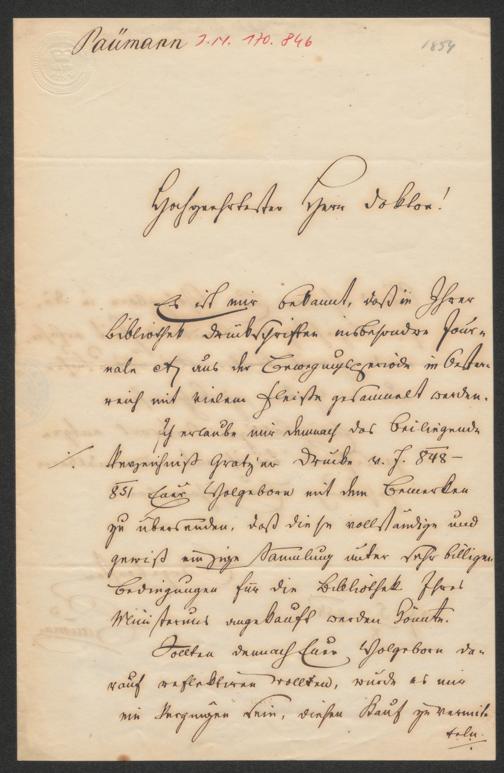 Paümann J.N. 170.846
1854
Hochgeehrtester Herr Doktor!
Es ist mir bekannt, daß in Ihrer
Bibliothek Druckschriften insbesondre Jour-
nale etz aus der Bewegungsperiode in Oester-
reich mit vielem Fleiße gesammelt werden.
Ich erlaube mir demnach das beiliegende
./. Verzeichniß Gratz'er Drucke v. J. 848-
851 Euer Wolgeborn mit dem Bemerken
zu übersenden, daß diese vollständige und
gewiß einzige Sammlung unter sehr billigen
Bedingungen für die Bibliothek Ihres
Ministeriums angekauft werden könnte.
Sollten demnach Euer Wolgeborn da-
rauf reflektiren wollten, würde es mir
ein Vergnügen sein, diesen Kauf zu vermit-
teln.